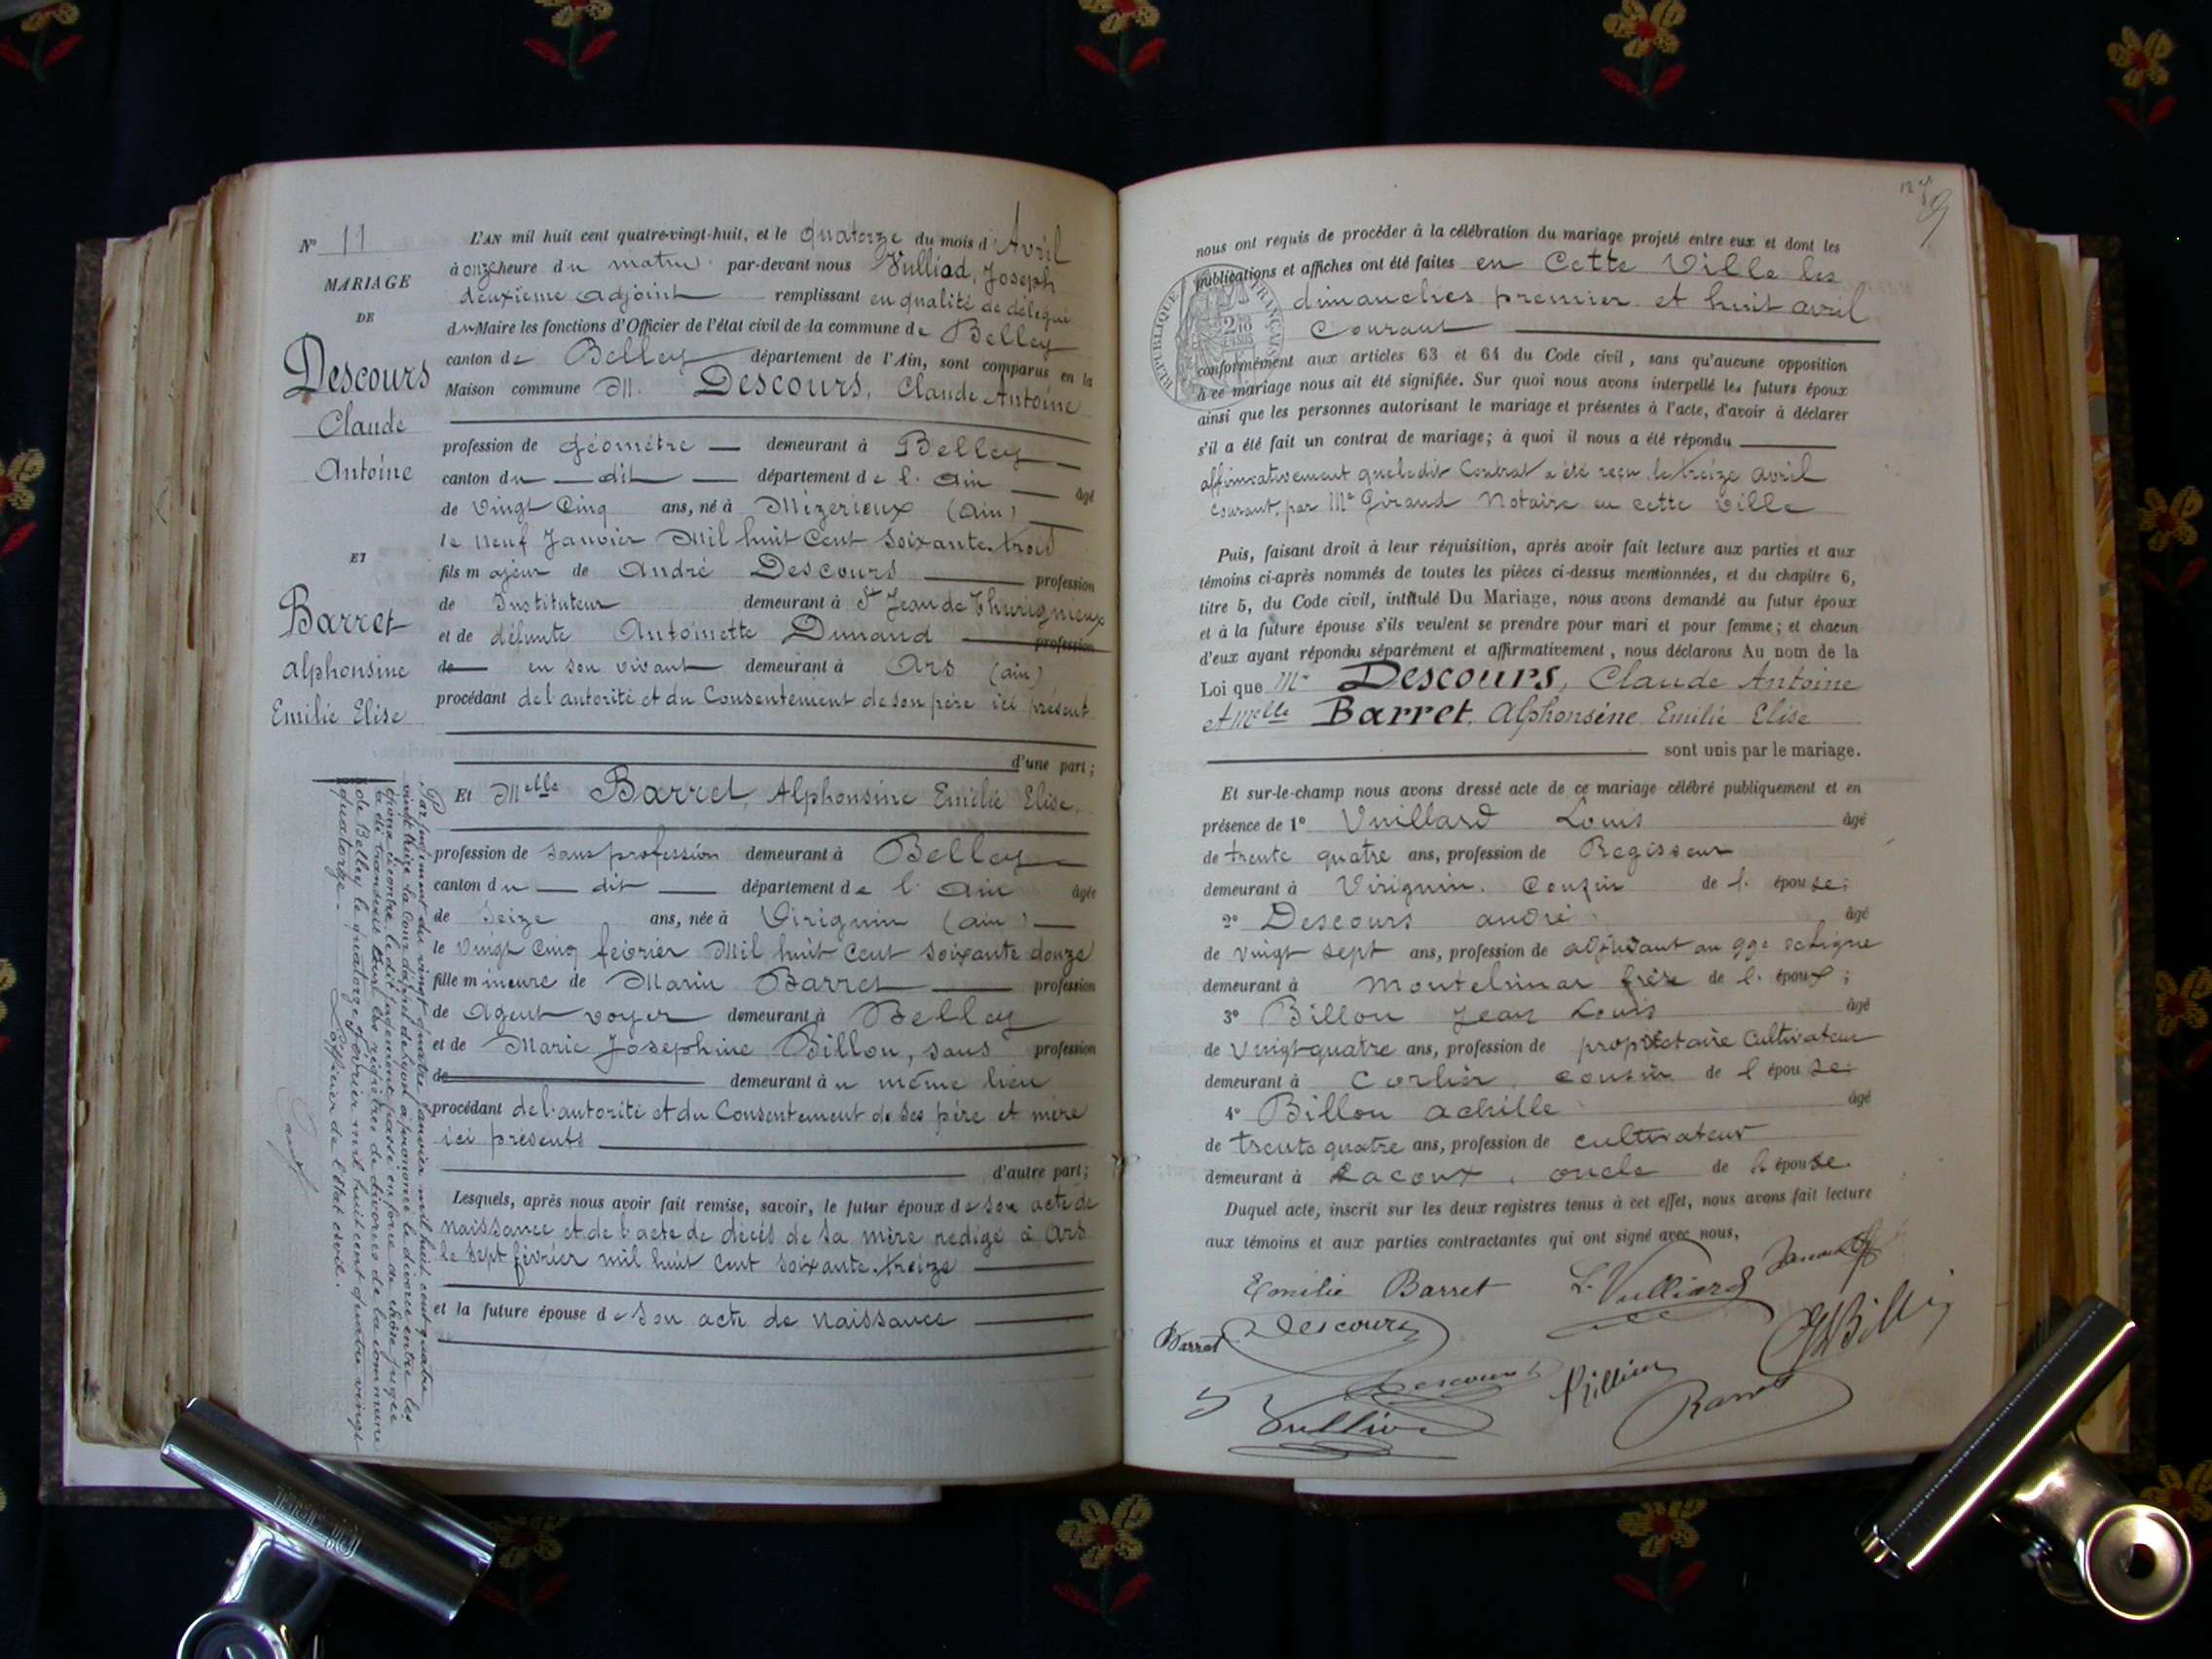 N° 11
MARIAGE
DE
Descours
Claude
Antoine
ET
Barret
alphonsine
Emilie Elise
L'AN mil huit cent quatre-vingt-huit, et le quatorze du mois d'Avril
à onze heure du matin par-devant nous Vulliad, Joseph
deuxième adjoint remplissant en qualité de délégué
du Maire les fonctions d'Officier de l'état civil de la commune de Belley
canton de Belley département de l'Ain, sont comparus en la
Maison commune M. Descours, Claude Antoine
profession de géomètre demeurant à Belley
canton du dit département de l'ain âgé
de vingt cinq ans, né à Mizerieux (ain)
le neuf Janvier Mil huit Cent Soixante trois
fils majeur de André Descours profession
de Instituteur demeurant à St Jean de Thurigneux
et de défunte Antoinette Dunand profession
de en son vivant demeurant à Ars (ain)
procédant de l'autorité et du Consentement de son père ici présent
d'une part;
Et Melle Barret, Alphonsine Emilie Elise,
profession de sans profession demeurant à Belley
canton du dit département de l'ain âgée
de seize ans, née à Virignin (ain)
le Vingt Cinq février Mil huit Cent soixante douze
fille mineure de Marin Barret profession
de Agent voyer demeurant à Belley
et de Marie Josephine Billon, sans profession
de demeurant à u même lieu
procédant de l'autorité et du Consentement de ses père et mère
ici présents
d'autre part;
Lesquels, après nous avoir fait remise, savoir, le futur époux de son acte de
naissance et de l'acte de décès de sa mère rédigé à Ars
le sept février mil huit cent soixante treize
et la future épouse de son acte de naissance
Par jugement du vingt quatre janvier mil huit cent quatre
vingt treize la Cour d'appel de Lyon a prononcé le divorce entre les
époux ci contre, le dit jugement passé en force de chose jugée
a été transcrit sur les registres de divorces de la commune
de Belley le quatorze février mil huit cent quatre vingt
quatorze. L'officier de l'état civil.
nous ont requis de procéder à la célébration du mariage projeté entre eux et dont les
publications et affiches ont été faites en Cette Ville les
dimanches premier et huit avril
Courant
RÉPUBLIQUE FRANÇAISE
conformément aux articles 63 et 64 du Code civil, sans qu'aucune opposition
à ce mariage nous ait été signifiée. Sur quoi nous avons interpellé les futurs époux
ainsi que les personnes autorisant le mariage et présentes à l'acte, d'avoir à déclarer
s'il a été fait un contrat de mariage; à quoi il nous a été répondu
affirmativement que le dit Contrat a été reçu le treize avril
courant, par Me Girand Notaire en cette Ville
Puis, faisant droit à leur réquisition, après avoir fait lecture aux parties et aux
témoins ci-après nommés de toutes les pièces ci-dessus mentionnées, et du chapitre 6,
titre 5, du Code civil, intitulé Du Mariage, nous avons demandé au futur époux
et à la future épouse s'ils veulent se prendre pour mari et pour femme; et chacun
d'eux ayant répondu séparément et affirmativement, nous déclarons Au nom de la
Loi que Mr Descours, Claude Antoine
et Melle Barret, Alphonsine Emilie Elise
sont unis par le mariage.
Et sur-le-champ nous avons dressé acte de ce mariage célébré publiquement et en
présence de 1° Vuillard Louis âgé
de trente quatre ans, profession de Regisseur
demeurant à Virignin. Cousin de l'épouse;
2° Descours andré âgé
de vingt sept ans, profession de adjudant au 99e de ligne
demeurant à Montelimar frère de l'époux;
3° Billon Jean Louis âgé
de Vingt quatre ans, profession de propriétaire Cultivateur
demeurant à Corlier, cousin de l'épouse;
4° Billon achille âgé
de trente quatre ans, profession de cultivateur
demeurant à Lacoux, oncle de l'épouse.
Duquel acte, inscrit sur les deux registres tenus à cet effet, nous avons fait lecture
aux témoins et aux parties contractantes qui ont signé avec nous,
Emilie Barret L. Vulliard
Descours
Barret
Descours
Barret